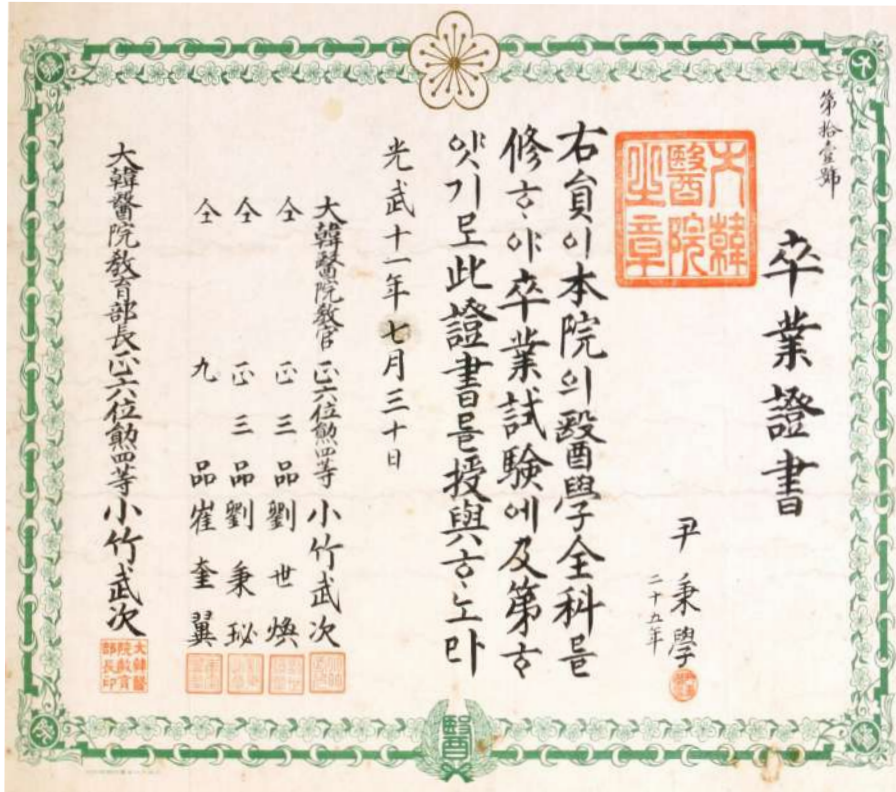 第拾壹號
卒業證書
尹秉學
二十五年
大韓
醫院
之章
右員이本院의醫學全科를
修ᄒᆞ야卒業試驗에及第ᄒᆞ
얏기로此證書를授與ᄒᆞ노라
光武十一年七月三十日
大韓醫院敎官 正六位勲四等 小竹武次
仝 正三品劉世煥
仝 正三品劉秉珌
仝 九品崔奎翼
大韓醫院敎育部長正六位勲四等小竹武次
大韓醫
院敎育
部長印
醫